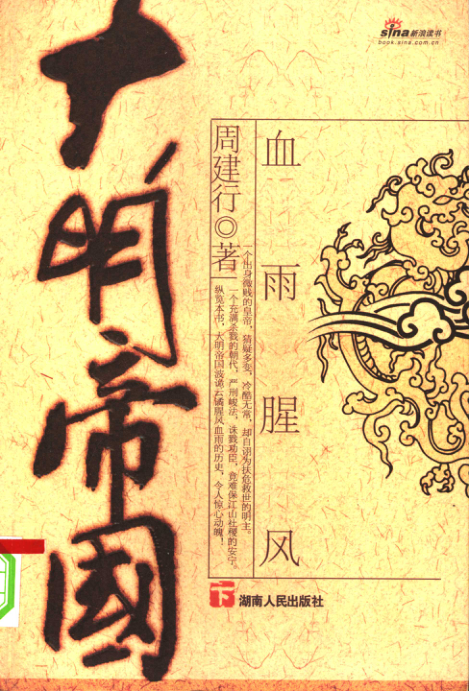 sina新浪读书
book.sina.com.cn
大明帝國
血雨腥风
周建行◎著
一个出身微贱的皇帝，猜疑多变，冷酷无常，却自诩为扶危救世的明主。
一个充满杀戮的朝代，严刑峻法，诛戮功臣，竟难保江山社稷的安宁。
纵览本书，大明帝国波诡云谲腥风血雨的历史，令人惊心动魄！
湖南人民出版社